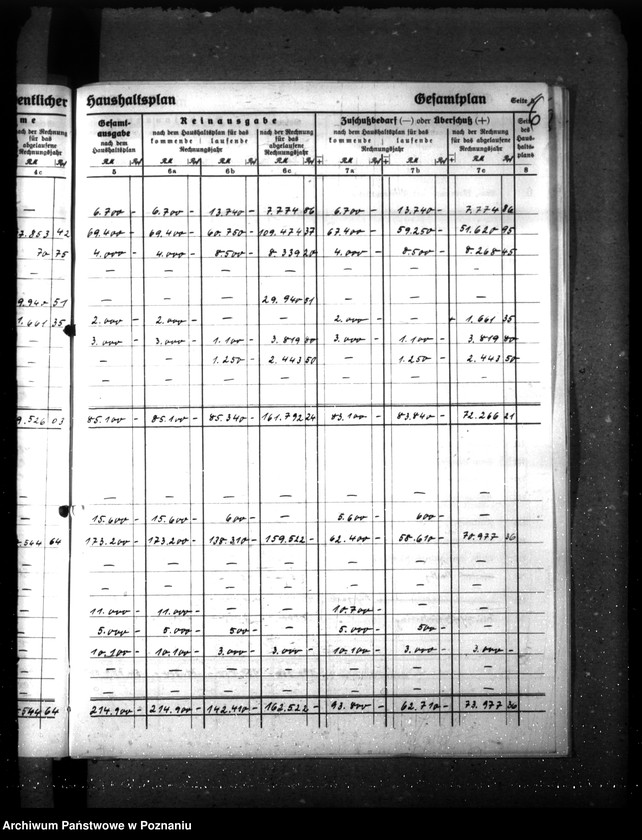 entlicher Haushaltsplan Gesamtplan Seite 6
me Gesamt- Reinausgabe Zuschußbedarf (—) oder Überschuß (+) Seite
nach der Rechnung ausgabe nach dem Haushaltsplan für das nach der Rechnung nach dem Haushaltsplan für das nach der Rechnung des
für das nach dem kommende laufende für das kommende laufende für das Haus-
abgelaufene Haushaltsplan Rechnungsjahr abgelaufene Rechnungsjahr abgelaufene halts-
Rechnungsjahr Rechnungsjahr Rechnungsjahr plans
RM Rpf RM Rpf RM Rpf RM Rpf RM Rpf ± RM Rpf RM Rpf ± RM Rpf
4c 5 6a 6b 6c 7a 7b 7c 8
— 6.700 - 6.700 - 13.740 - 7.774 86 6.700 - 13.740 - 7.774 86
7.853 42 69.400 - 69.400 - 60.750 - 109.474 37 67.400 - 59.250 - 51.620 95
70 75 4.000 - 4.000 - 8.500 - 8.339 20 4.000 - 8.500 - 8.268 45
— — — — — — — —
9.940 51 — — — 29.940 51 — — —
1.661 35 2.000 - 2.000 - — — 2.000 - — + 1.661 35
— 3.000 - 3.000 - 1.100 - 3.819 80 3.000 - 1.100 - 3.819 80
— — — 1.250 - 2.443 50 — 1.250 - 2.443 50
— — — — — — — —
9.526 03 85.100 - 85.100 - 85.340 - 161.792 24 83.100 - 83.840 - 72.266 21
— — — — — — —
15.600 - 15.600 - 600 - — 5.600 - 600 - —
544 64 173.200 - 173.200 - 138.310 - 159.522 - 62.400 - 58.610 - 70.977 36
— — — — — — —
— — — — — — —
11.000 - 11.000 - — — 10.700 - — —
5.000 - 5.000 - 500 - — 5.000 - 500 - —
10.100 - 10.100 - 3.000 - 3.000 - 10.100 - 3.000 - 3.000 -
— — — — — — —
— — — — — — —
544 64 214.900 - 214.900 - 142.410 - 162.522 - 93.800 - 62.710 - 73.977 36
Archiwum Państwowe w Poznaniu